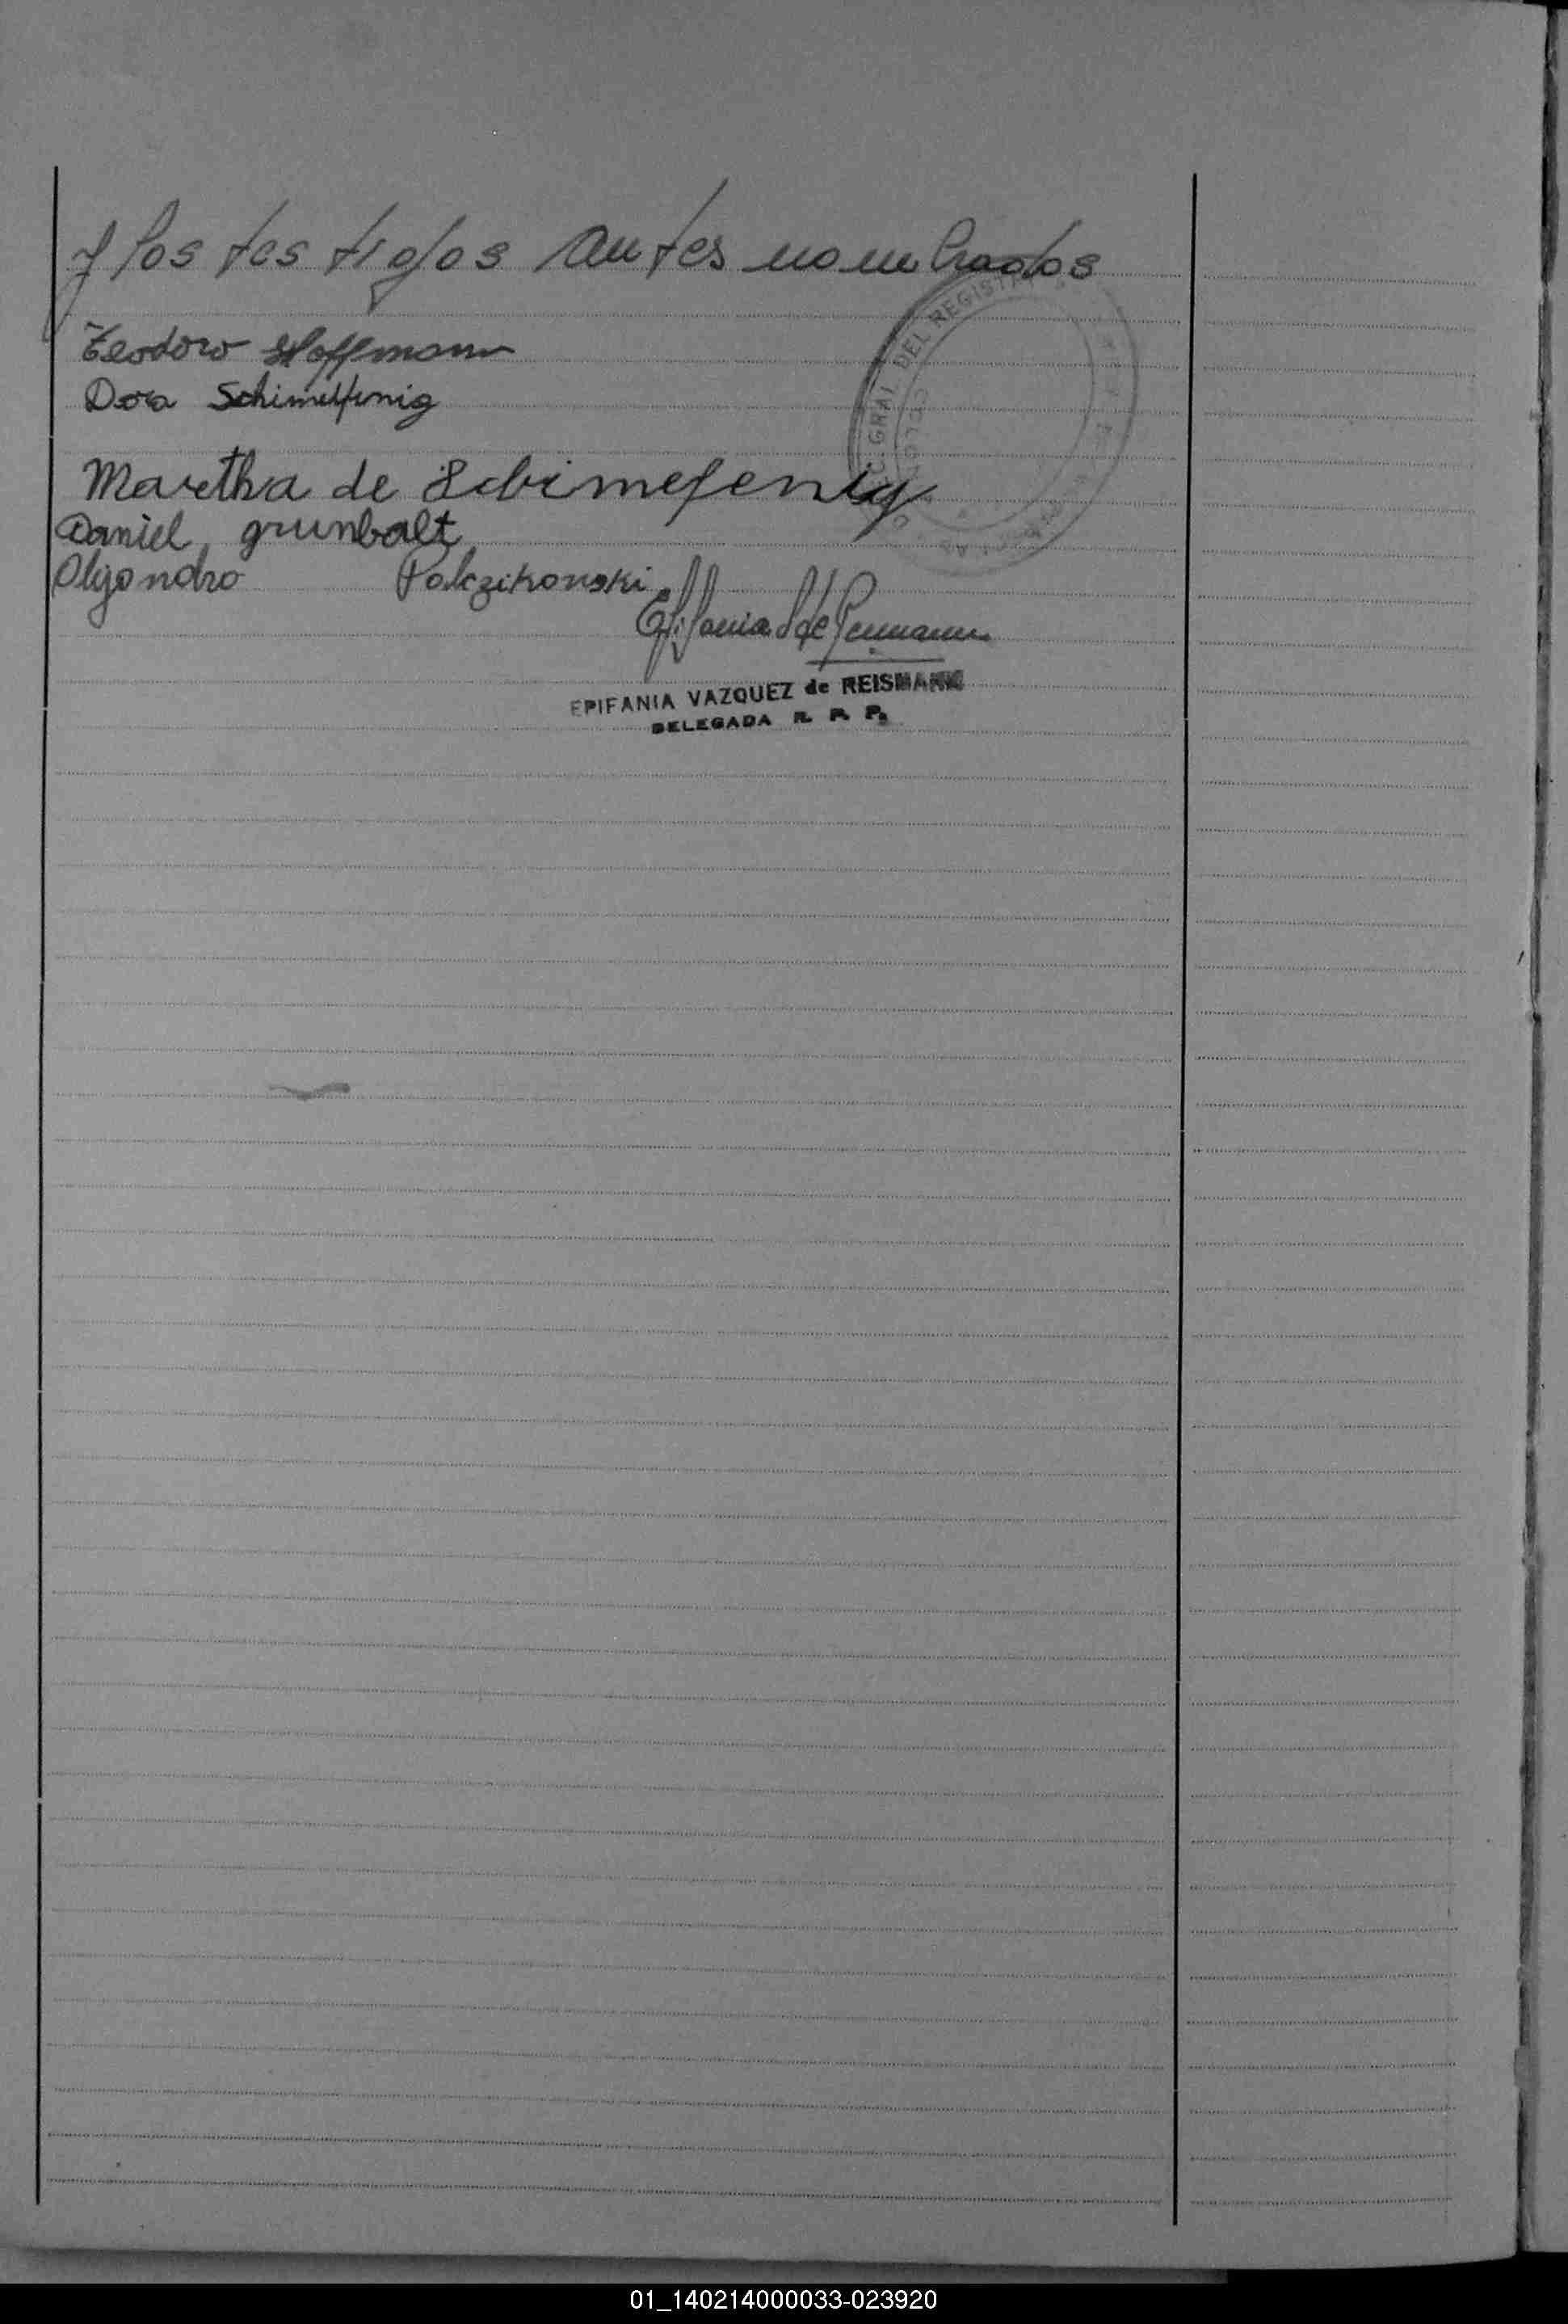 y los testigos antes nombrados
Teodoro Hoffmann
Dora Schimelfenig
Martha de Schimefenig
Daniel grunbalt
Alejandro Palczikonski
GRAL DEL REGISTRO
EPIFANIA VAZQUEZ de REISMANN
DELEGADA R. P. P.
01_140214000033-023920